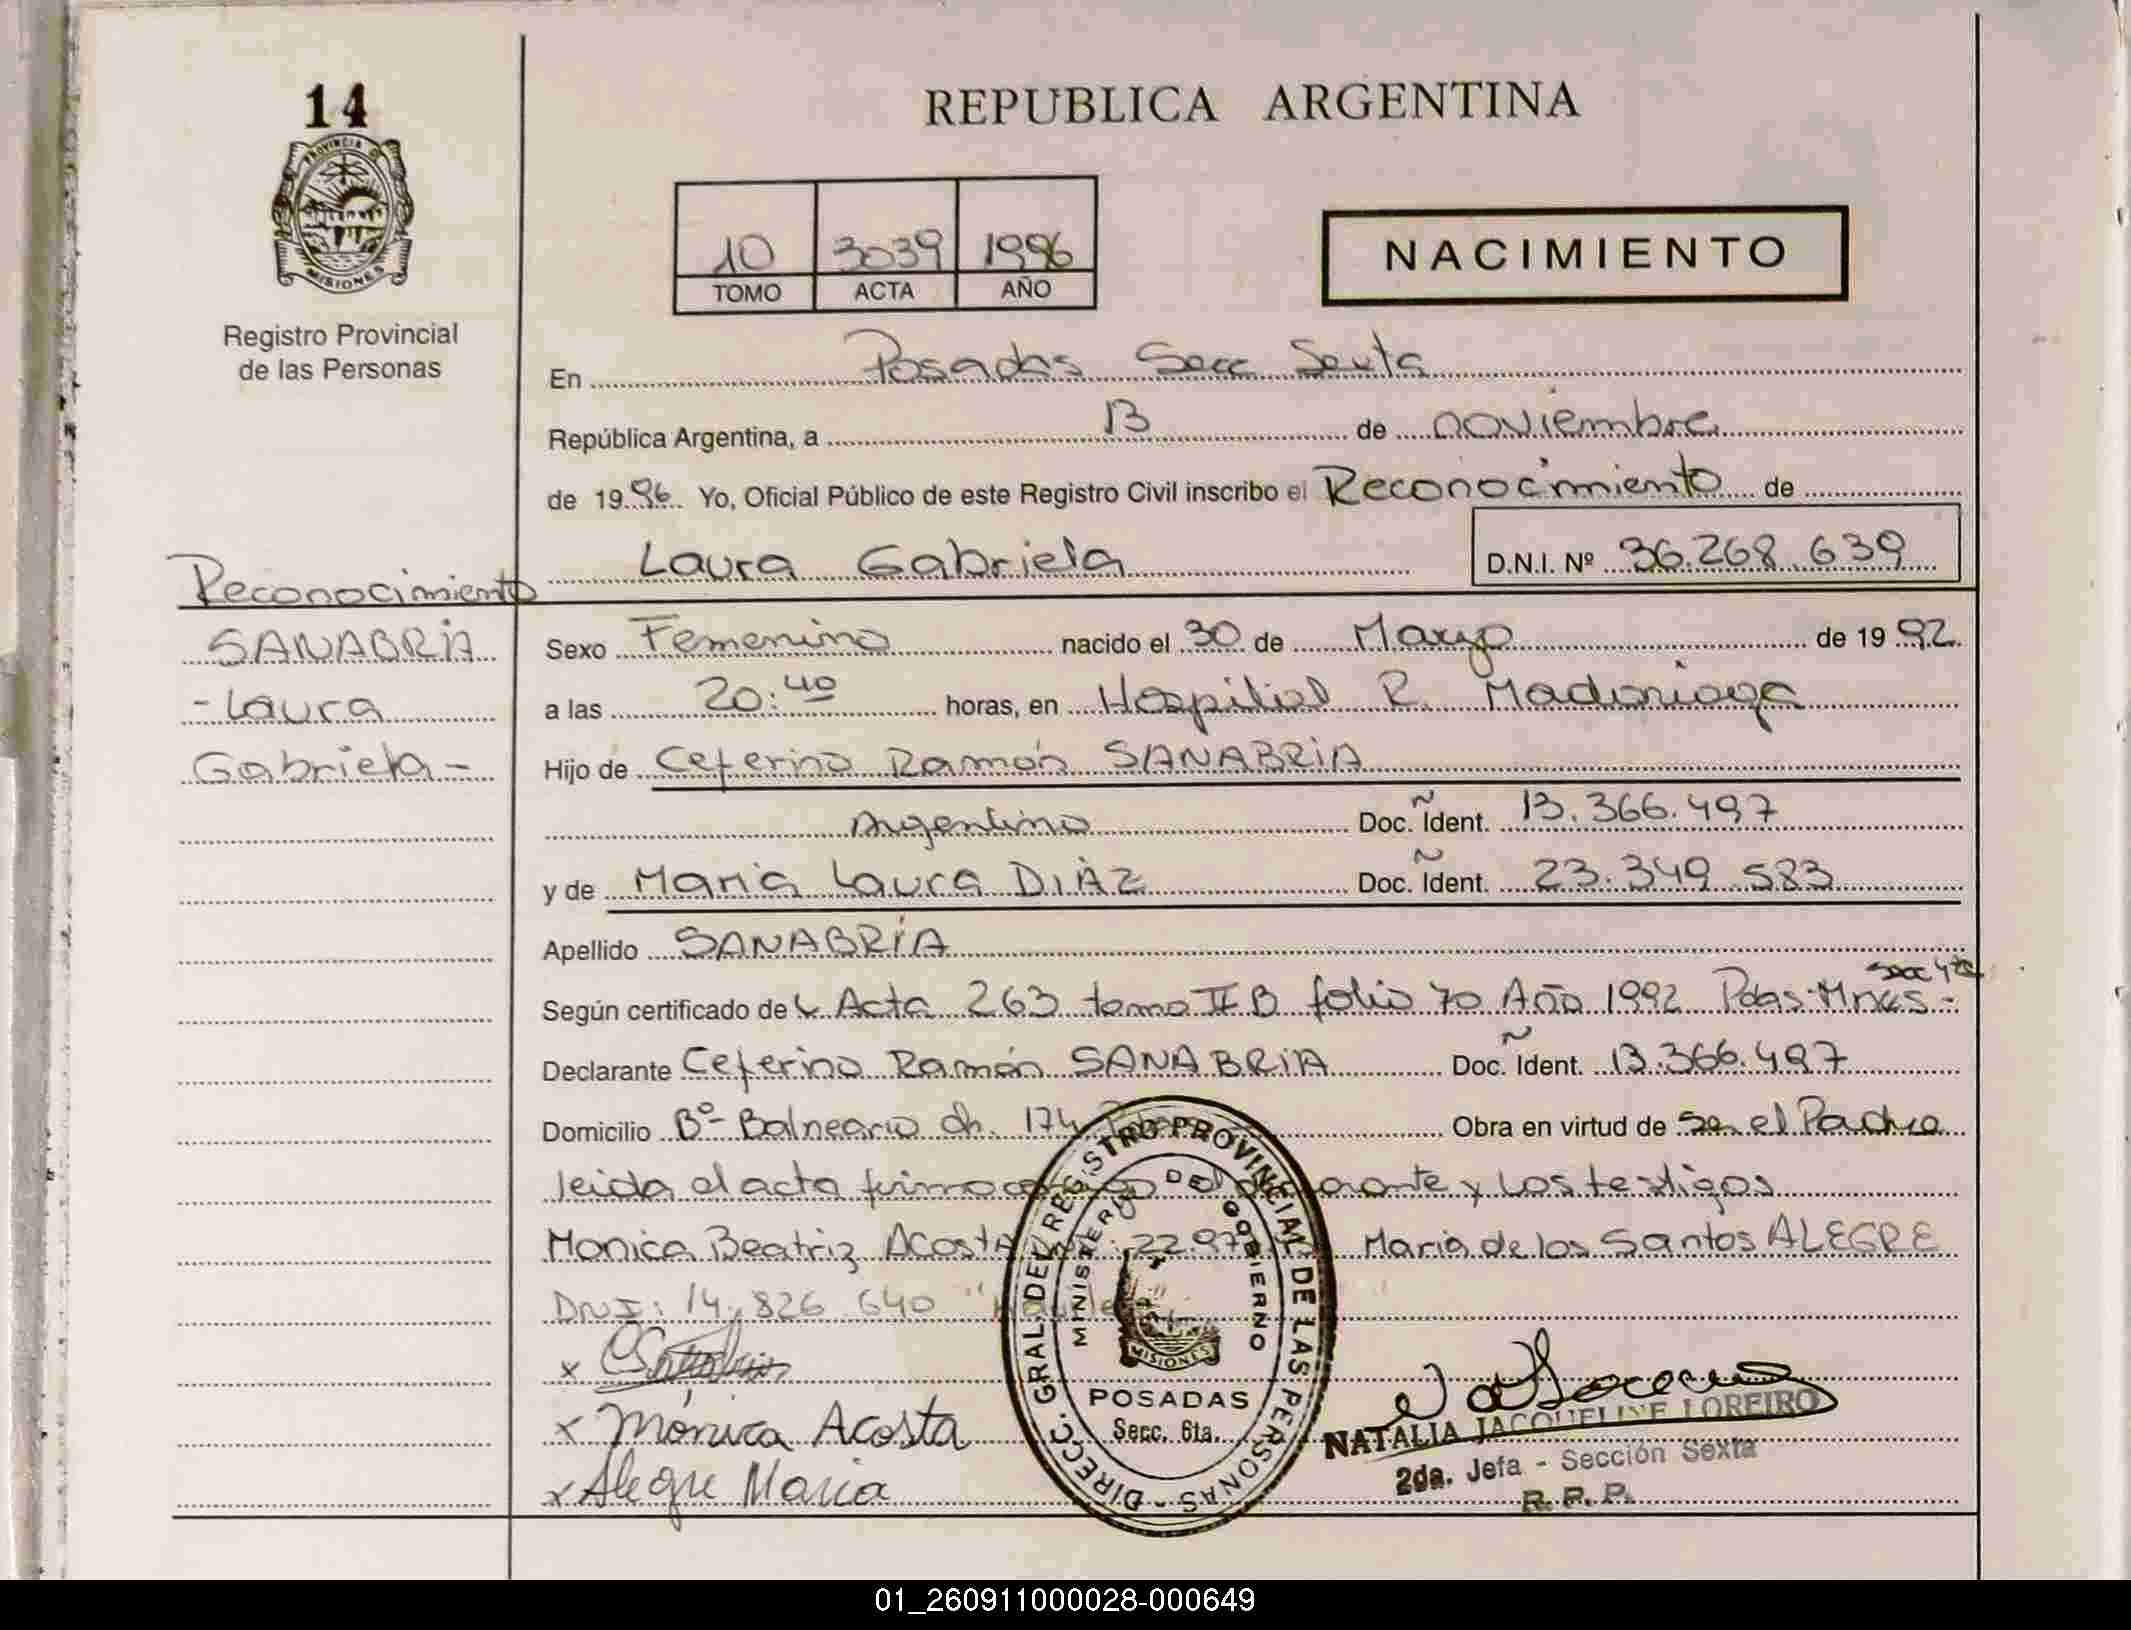 14
PROVINCIA DE
MISIONES
Registro Provincial
de las Personas
REPUBLICA ARGENTINA
10 3039 1996
TOMO ACTA AÑO
NACIMIENTO
En Posadas Secc Sexta
República Argentina, a 13 de noviembre
de 1996. Yo, Oficial Público de este Registro Civil inscribo el Reconocimiento de
Laura Gabriela D.N.I. Nº 36.268.639
Reconocimiento
SANABRIA
- Laura
Gabriela -
Sexo Femenino nacido el 30 de Marzo de 1992.
a las 20:40 horas, en Hospital R. Madariaga
Hijo de Ceferino Ramón SANABRIA
Argentino Doc. Ident. 13.366.497
y de Maria Laura DIAZ Doc. Ident. 23.349.583
Apellido SANABRIA
Secc 4ta
Según certificado de Acta 263 tomo II B folio 70 Año 1992 Pdas. Mnes -
Declarante Ceferino Ramón SANABRIA Doc. Ident. 13.366.497
Domicilio Bº Balneario ch. 174 Obra en virtud de Ser el Padre
leida el acta y los testigos
Monica Beatriz Acosta 22.97 Maria de los Santos ALEGRE
DNI: 14.826 640
x
x Mónica Acosta
x Alegre Maria
DIRECC. GRAL. DEL REGISTRO PROVINCIAL DE LAS PERSONAS -
MINISTERIO DE GOBIERNO
MISIONES
POSADAS
Secc. 6ta.
NATALIA JACQUELINE LOREIRO
2da. Jefa - Sección Sexta
R. P. P.
01_260911000028-000649